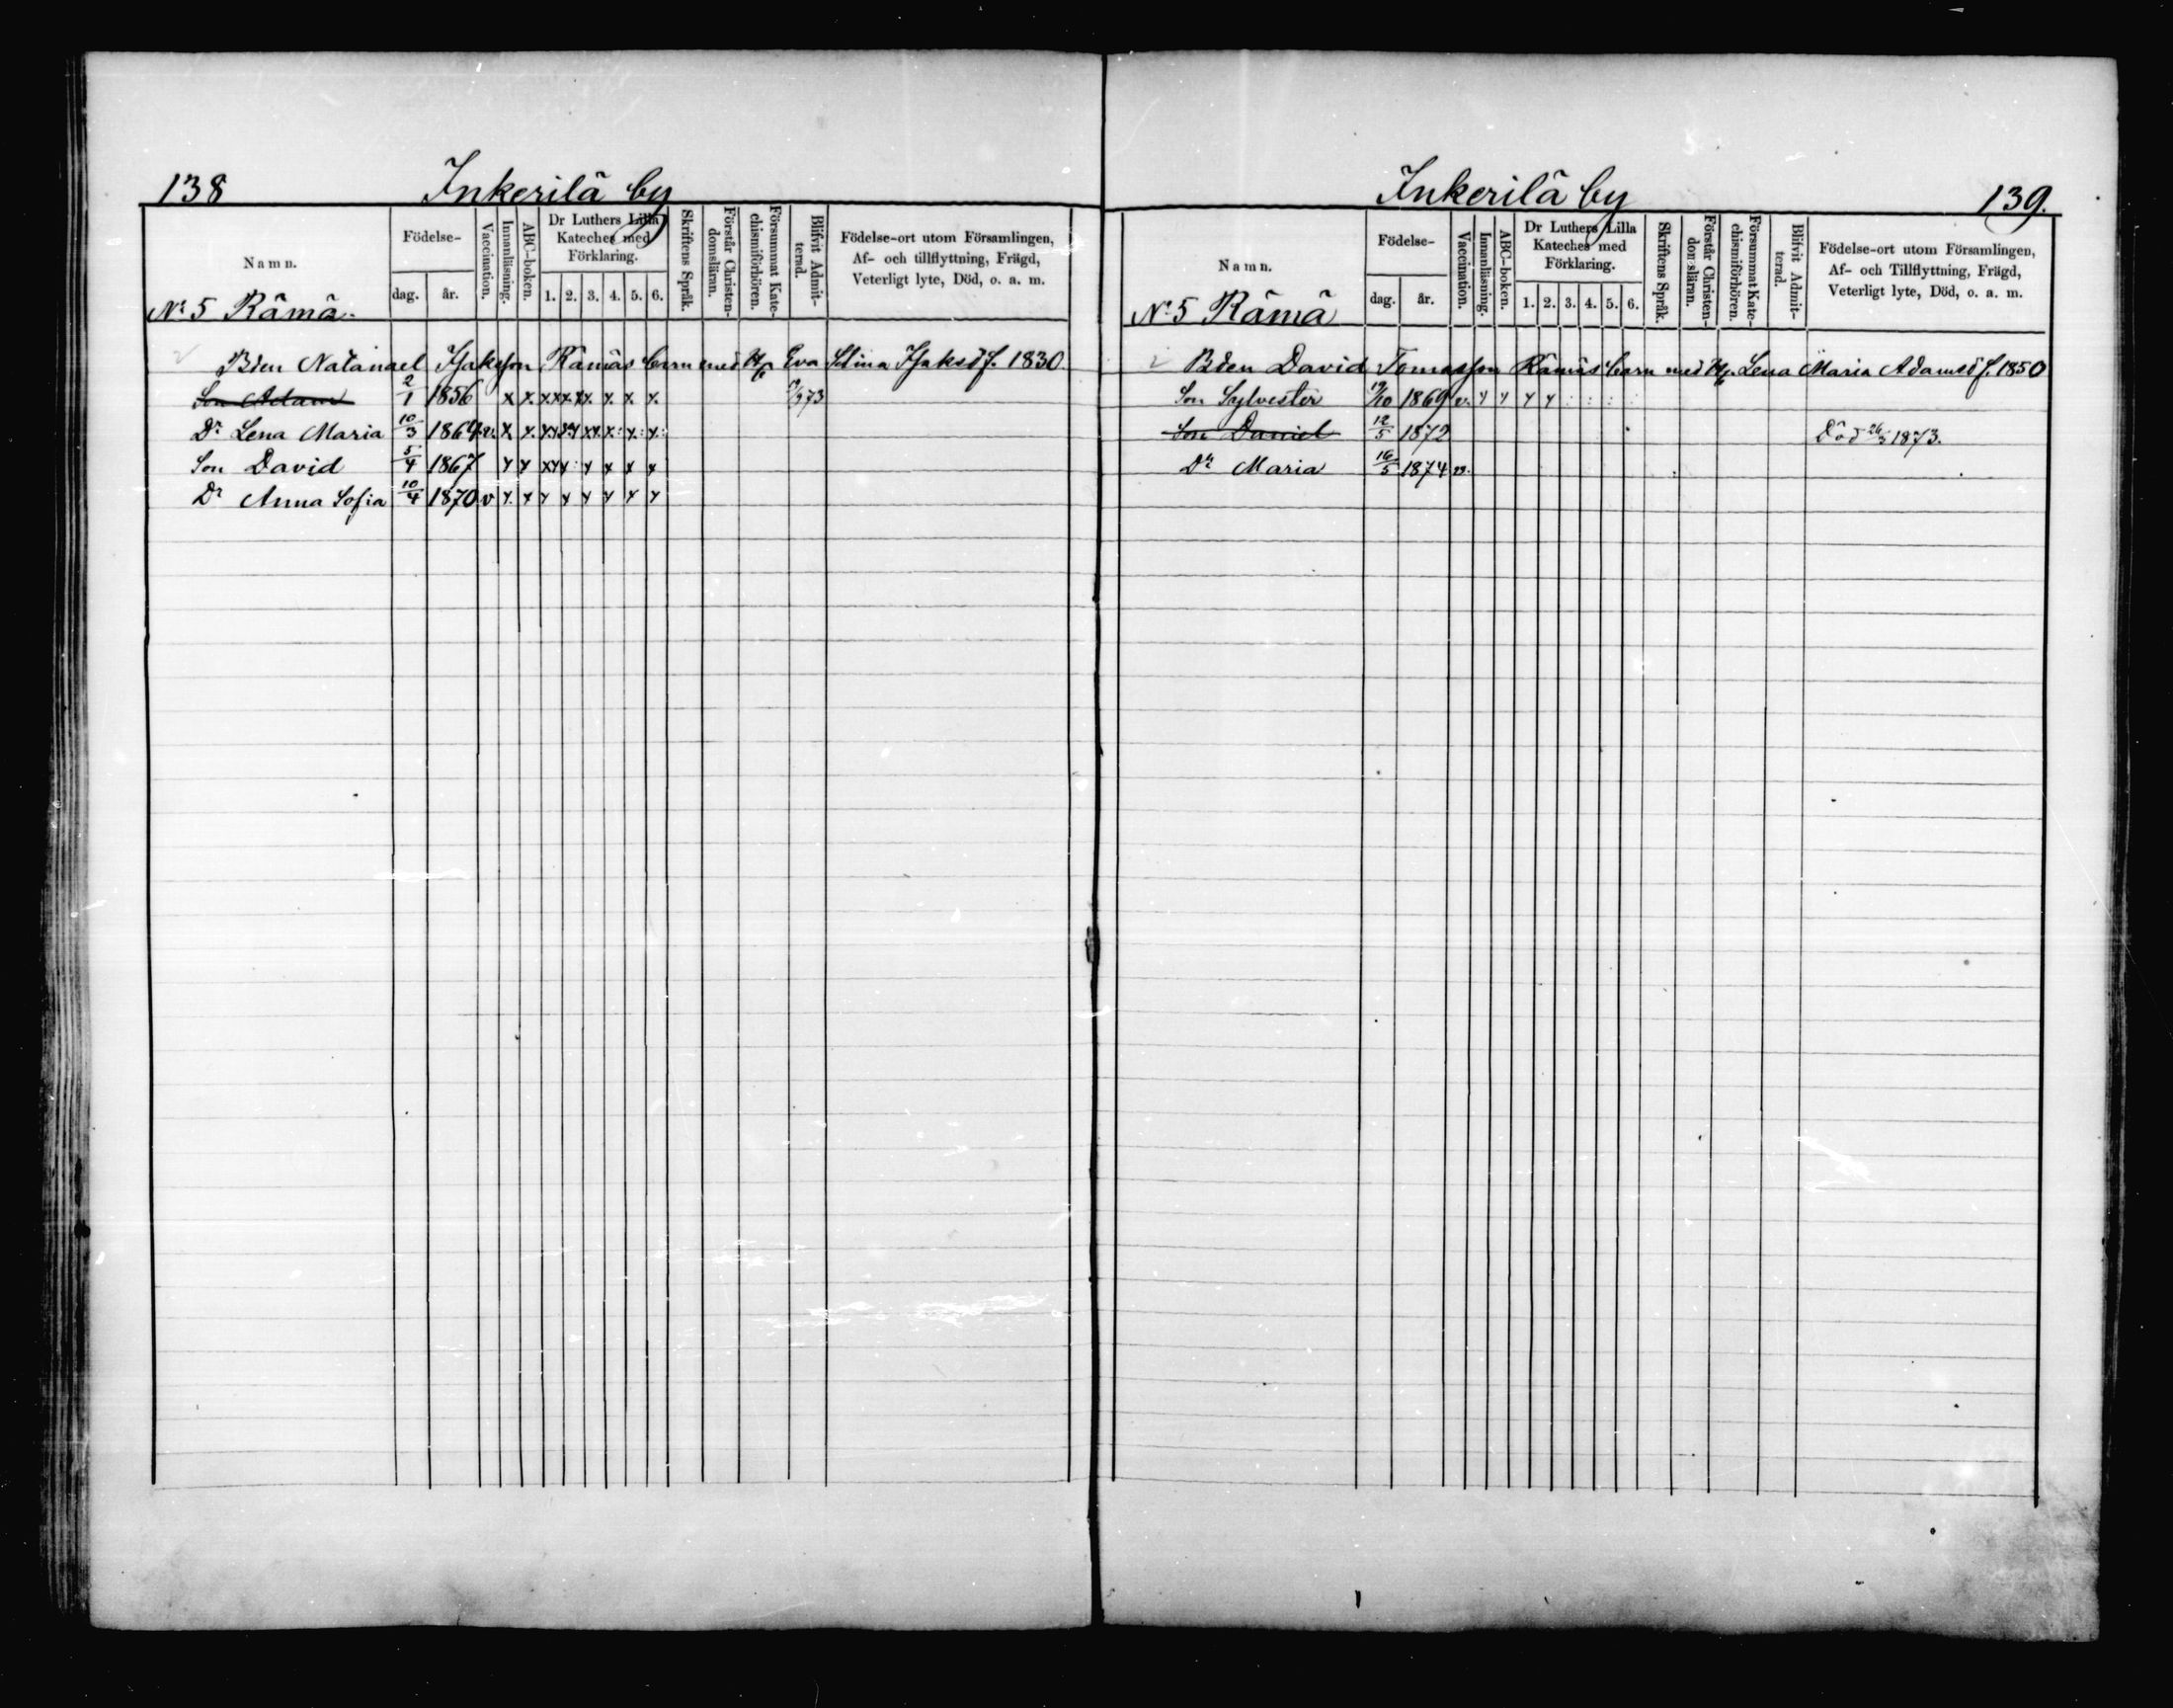 138 Inkerilä by
Namn.
Födelse-
dag. år.
Vaccination.
Innanläsning.
ABC-boken.
Dr Luthers Lilla
Kateches med
Förklaring.
1. 2. 3. 4. 5. 6.
Skriftens Språk.
Förstår Christen-
domsläran.
Försummat Kate-
chismiförhören.
Blifvit Admit-
terad.
Födelse-ort utom Församlingen,
Af- och tillflyttning, Frägd,
Veterligt lyte, Död, o. a. m.
No 5 Rämä.
Bden Natanael Isaksson Rämäs barn med Hu Eva Stina Isaksd f. 1830
Son Adam 2/1 1856 x x. xx xx xx. x. x. x.
Dr Lena Maria 10/3 1864 v. x x. x. x: x: x:
Son David 5/4 1867 x x x x x x
Dr Anna Sofia 10/4 1870 v x x x x x x x x
Inkerilä by 139.
Namn.
Födelse-
dag. år.
Vaccination.
Innanläsning.
ABC-boken.
Dr Luthers Lilla
Kateches med
Förklaring.
1. 2. 3. 4. 5. 6.
Skriftens Språk.
Förstår Christen-
domsläran.
Försummat Kate-
chismiförhören.
Blifvit Admit-
terad.
Födelse-ort utom Församlingen,
Af- och Tillflyttning, Frägd,
Veterligt lyte, Död, o. a. m.
No 5 Rämä
Bden David Tomasson Rämäs barn med Hu. Lena Maria Adamsd f. 1850
Son Sylvester 19/10 1869 v. x x x x
Son Daniel 12/5 1872 Död 26/3 1873.
Dr Maria 16/5 1874 v.